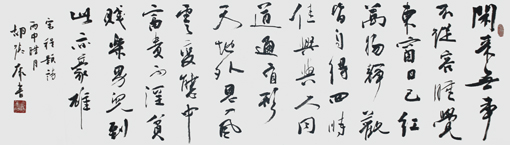 閑来無事
不從容睡覺
東窗日已紅
萬物靜觀
皆自得四時
佳興與人同
道通有形
天地外思入風
雲變態中
富貴不淫貧
賤樂男兒到
此亦豪雄
宋程顥詩
丙申腊月
胡
書